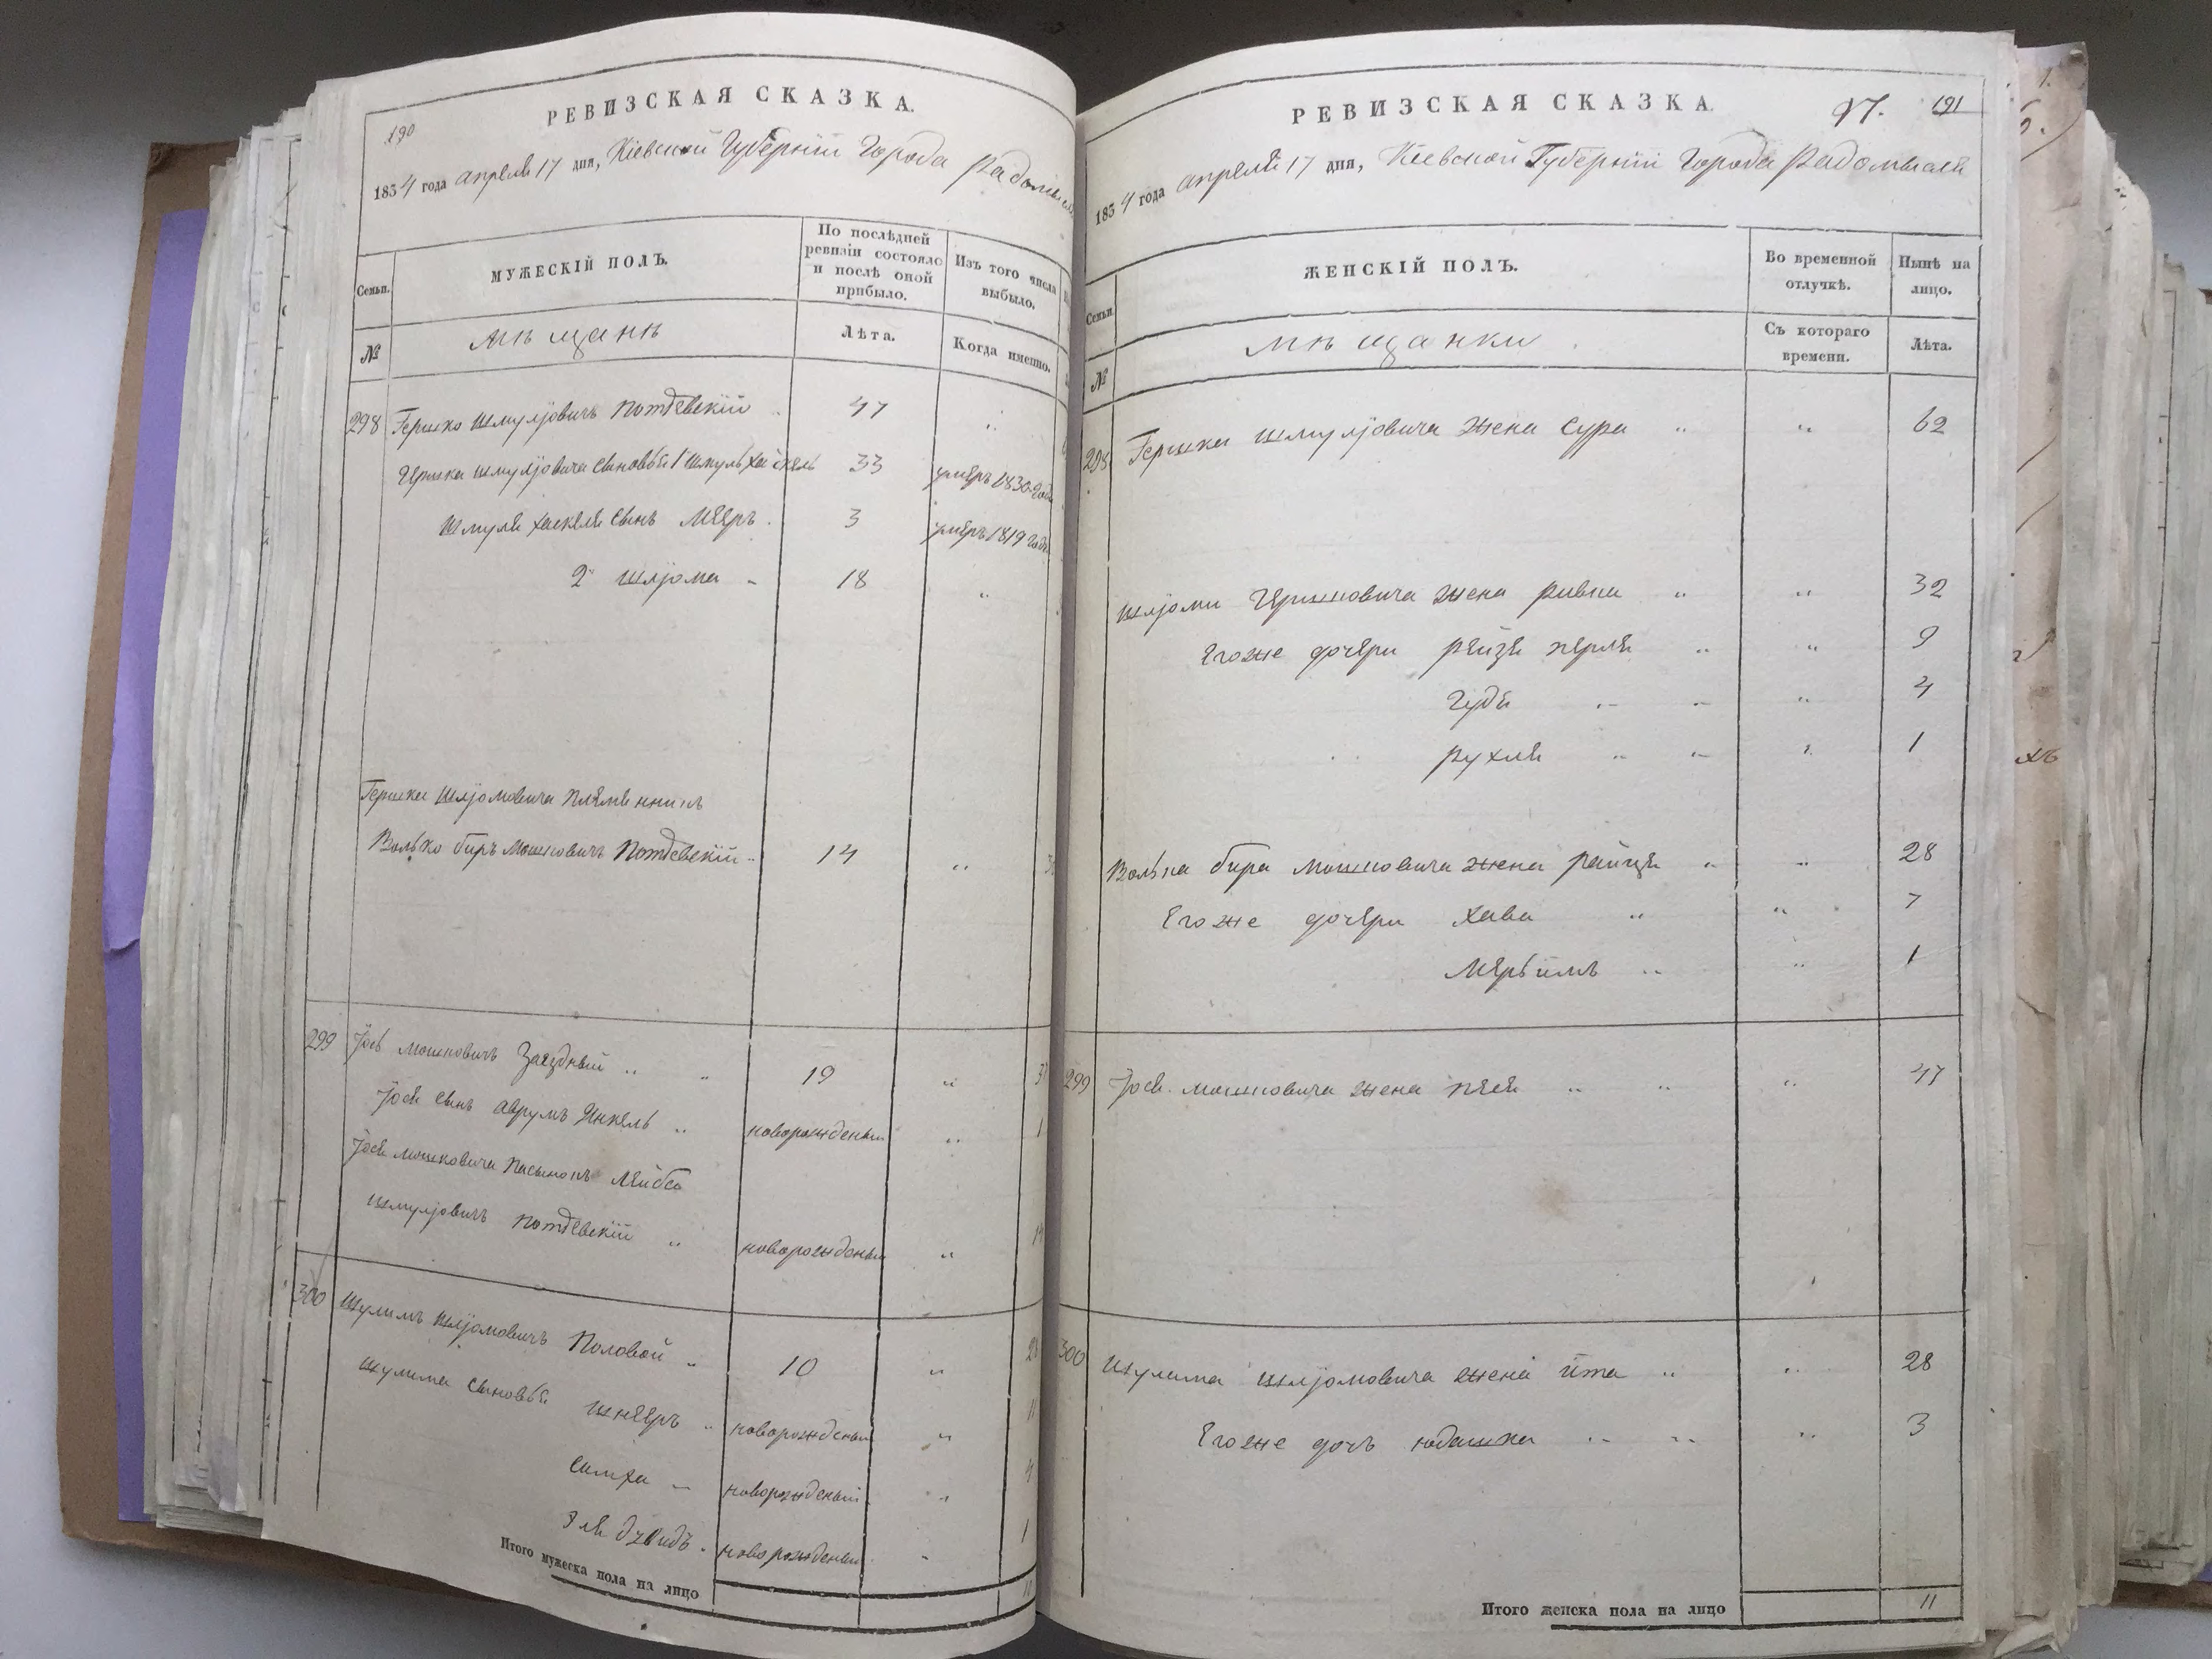 190
РЕВИЗСКАЯ СКАЗКА.
1834 года апреля 17 дня, Кіевской Губерніи Города Радомысля
Семьи.
МУЖЕСКІЙ ПОЛЪ.
По послѣдней ревизіи состояло и послѣ оной прибыло.
Изъ того числа выбыло.
№
мѣщане
Лѣта.
Когда именно.
298 Гершко Шмуліовичъ 47 "
Гершка Шмуліовича сыновья 1й Шмуль Хаскель 33 умеръ 1830 года
Шмуля Хаскеля сынъ Мееръ 3 умеръ 1819 года
2й Шліома 18 "
Гершка Шліомовича племенникъ
Волько биръ Мошковичъ 14 "
299 Мошковичъ Заездный " " 19 "
сынъ Аврумъ Янкель " новорожденый " 1
Мошковича пасынокъ Лейба
Шмуліовичъ " новорожденый "
300 Шулимъ Шліомовичъ Половой " 10 "
Шулима сыновья Шнееръ " новорожденый "
Симха новорожденый "
новорожденый " 1
Итого мужеска пола на лицо
РЕВИЗСКАЯ СКАЗКА.
97. 191
1834 года апреля 17 дня, Кіевской Губерніи Города Радомысля
Семьи.
ЖЕНСКІЙ ПОЛЪ.
Во временной отлучкѣ.
Нынѣ на лицо.
№
мѣщанки
Съ котораго времени.
Лѣта.
298 Гершка Шмуліовича жена Сура " " 62
Шліоми Гершковича жена Ривка " " 32
Егоже дочери Рейзя Перля " " 9
" 4
Рухля " " 1
Волька бира Мошковича жена " " 28
Егоже дочери Хава " " 7
Мерьимъ " " 1
299 Мошковича жена " " " 47
300 Шулима Шліомовича жена Ита " " 28
Егоже дочь Юдашка " " " 3
Итого женска пола на лицо 11